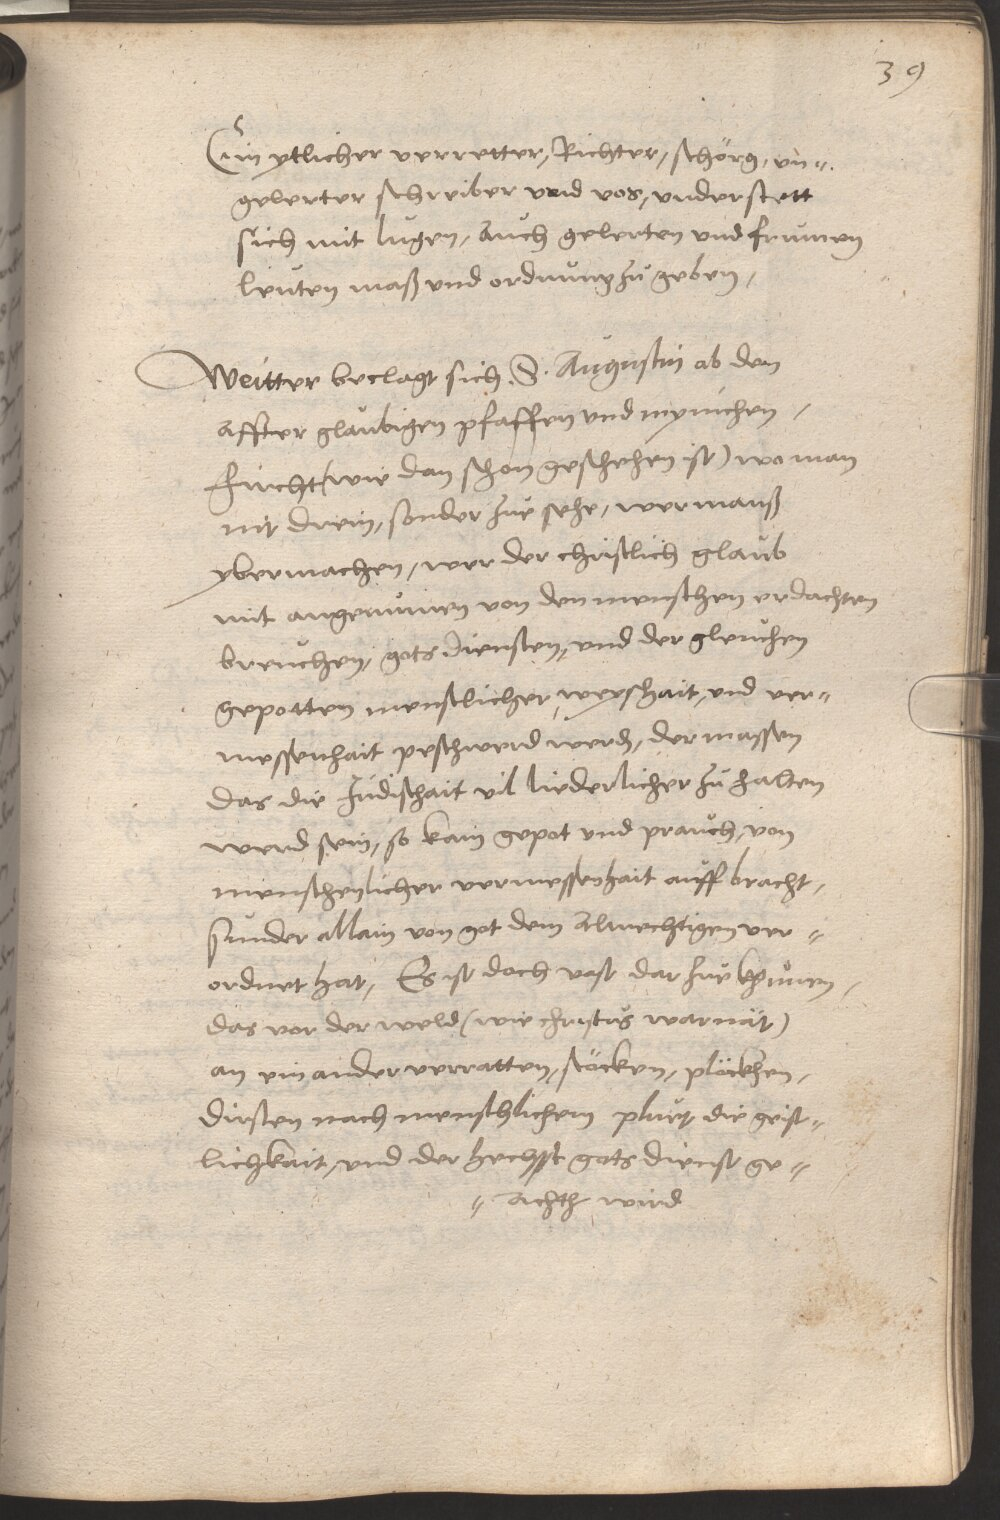 39
Ein ytlicher verretter, Richter, scherg, un„
gelerter schreiber vnd vos, vnderstett
sich mit lugen, auch gelerten vnd frumen
leuten maß vnd ordnung zu geben,
Weitter beclagt sich S. Augustin ob den
affter glaubigen pfaffen vnd mynichen,
Fircht (wie dan schon geschehen ist) wo man
nit drein, sonder zue sehe, wer mans
ybermachen, wer der christlich glaub
mit angenumen von den menschen erdachten
breuchen, gots diensten, vnd der gleichen
gepotten menschlicher weyshait, vnd ver„
messenhait peschwerd werdn, dermassen
das die Judischait vil liederlicher zu halten
werd sein, so kain gepot vnd prauch, von
menschenlicher vermessenhait auff bracht,
sunder allain von got dem Almechtigen ver„
ordnet hat, Es ist doch vast dar zue khumen,
das vor der weld (wie christus warnät)
an ein ander verratten, stöcken, plöckhen,
dirsten nach menschlichem pluet die geist„
lichkait, vnd der hechsst gots dienst ge„
„ achtt wird